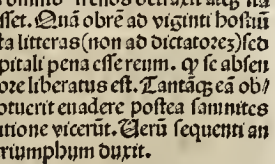 sset. Quā obrē ad viginti hostiū
ta litteras (non ad dictatorez) sed
pitali pena esse reum. q̄ se absen
ore liberatus est. Tantāq̄ eā ob/
potuerit euadere postea samnites
utione vicerūt. Uerū sequenti an
triumphum duxit.